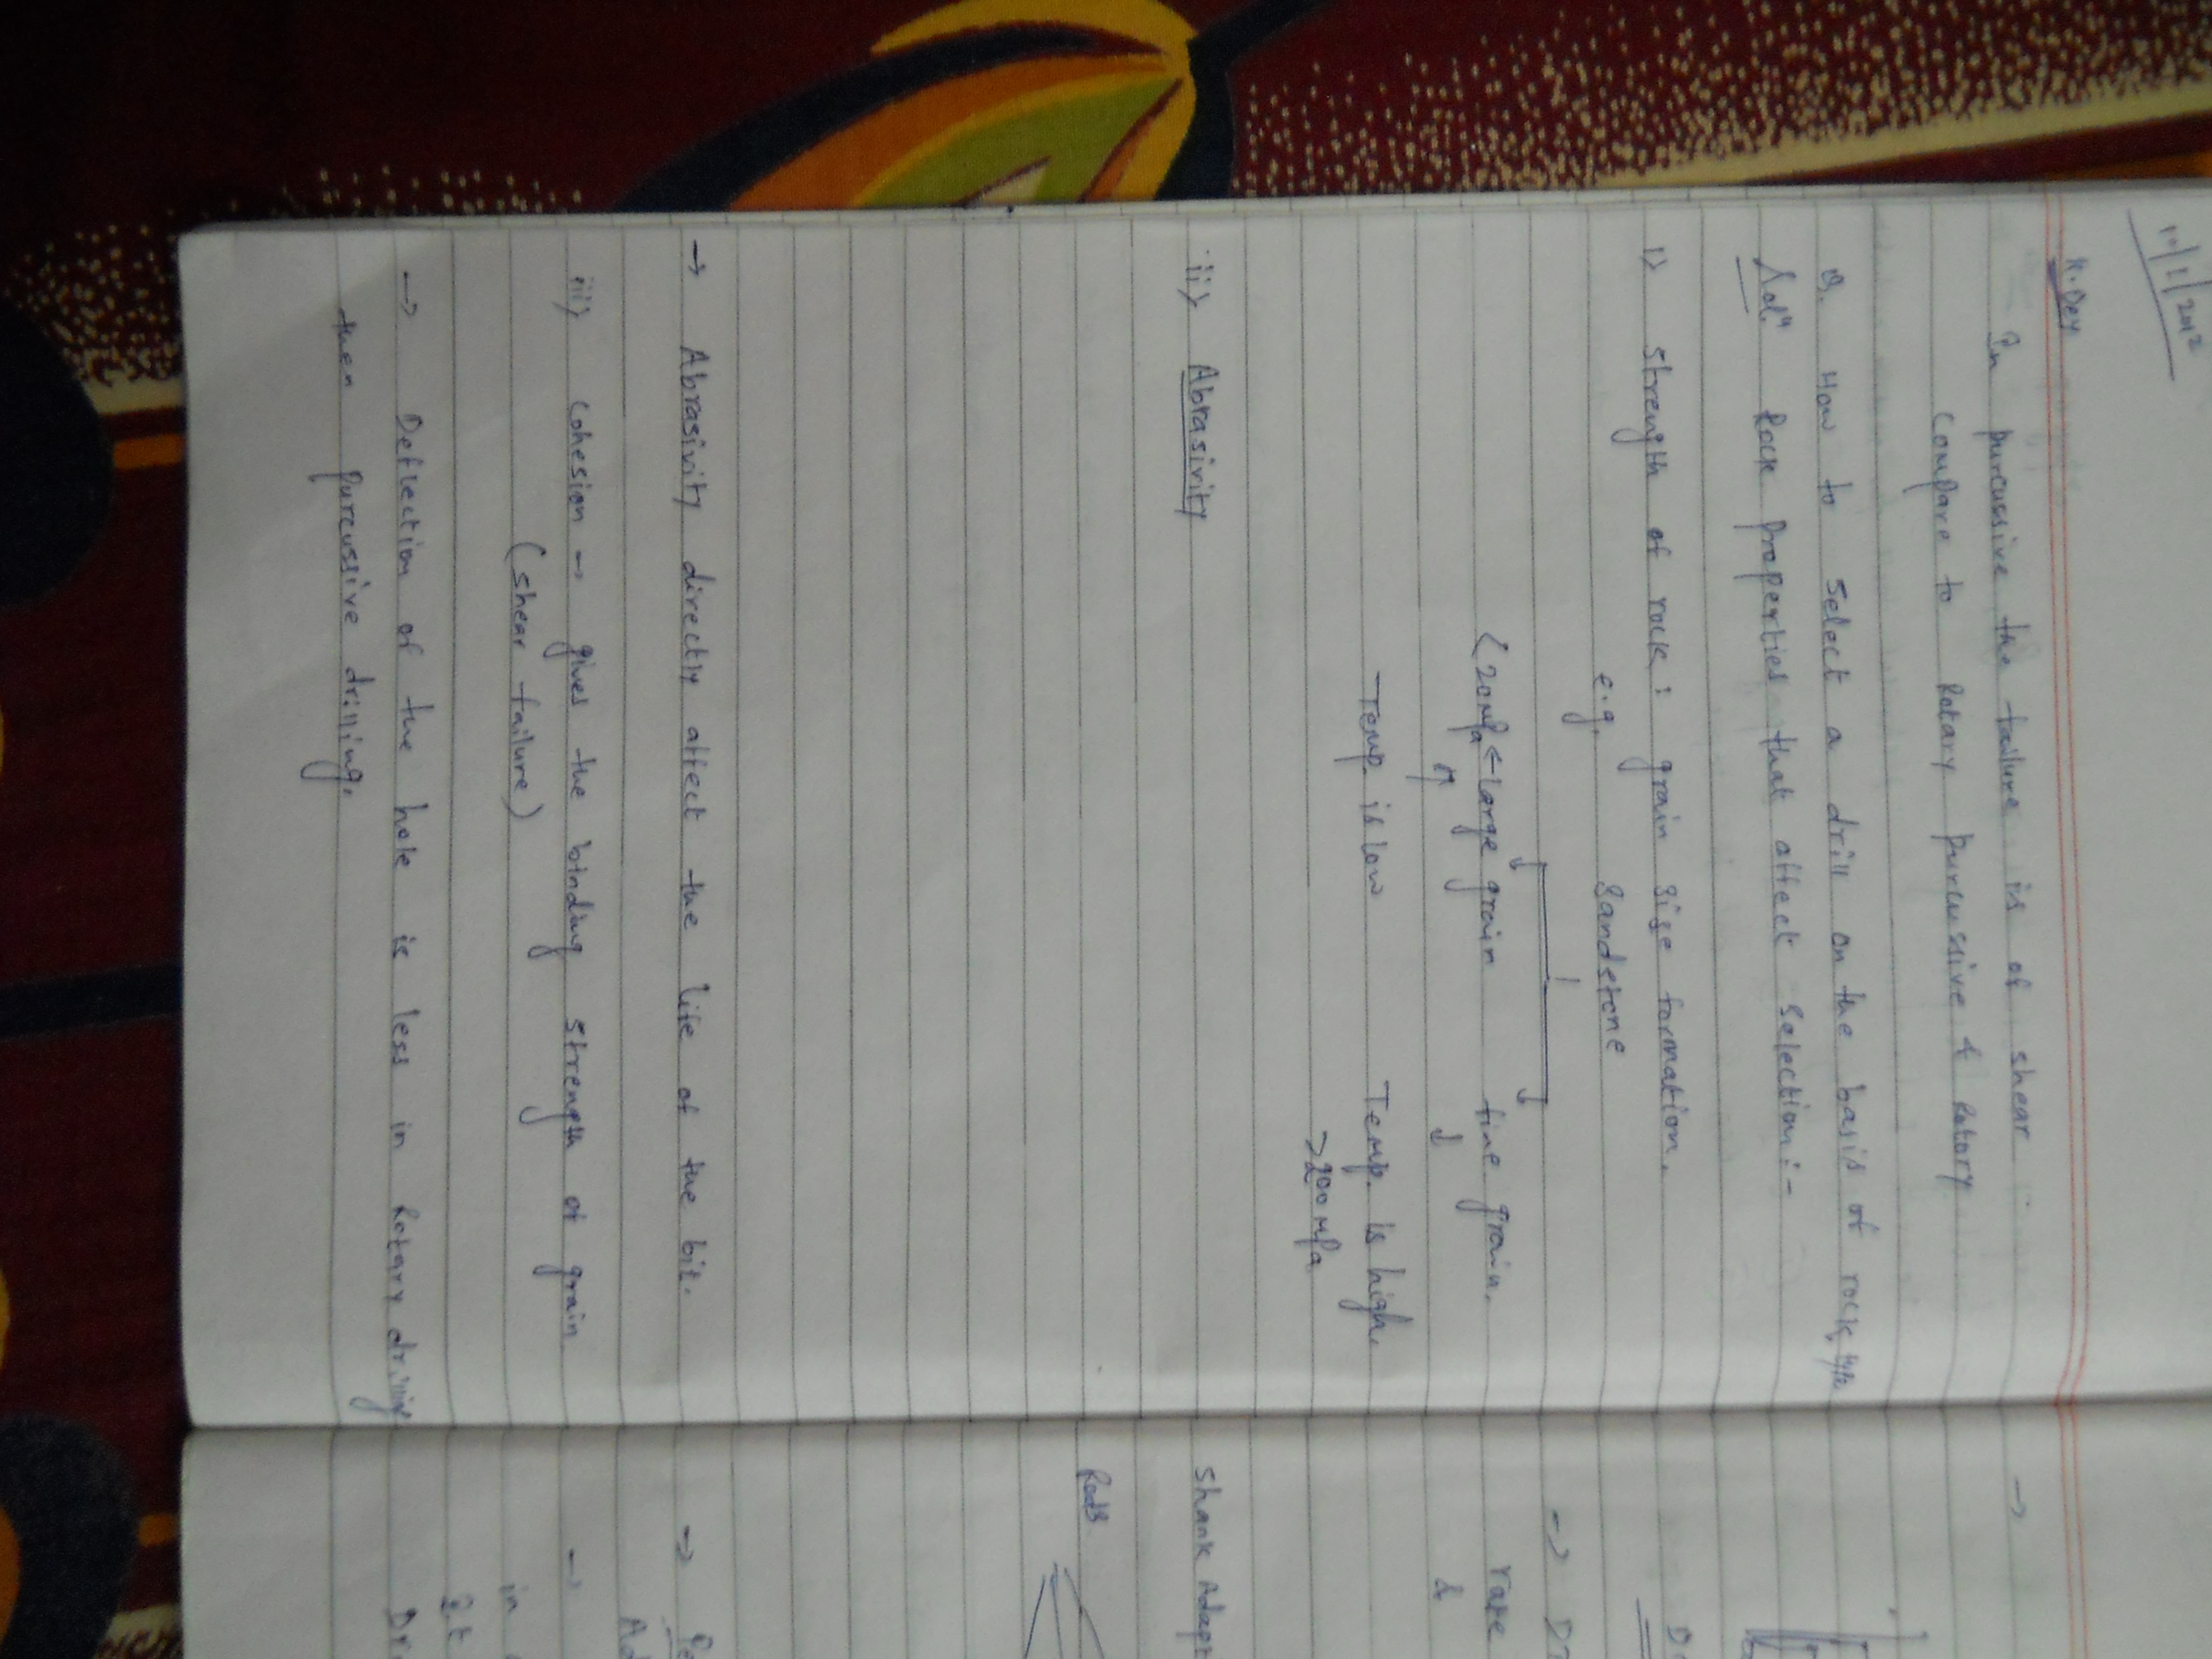 10/1/2012
K. Dey
In purcussive the failure is of shear
compare to Rotary purcussive & Rotory
Q. How to select a drill on the basis of rock type
Solⁿ Rock properties that affect selection:-
i) strength of rock : grain size formation.
e.g. Sandstone
(20 MPa ← Large grain fine grain.
Temp. is low Temp. is high.
>200 MPa
ii) Abrasivity
→ Abrasivity directly affect the life of the bit.
iii) cohesion → gives the binding strength of grain
(shear failure)
→ Deflection of the hole is less in Rotary drilling
then purcussive drilling.
→
→ Dr
rate
&
Shank Adapt
Rods
→ Pe
Ad
→
in
It
Dri